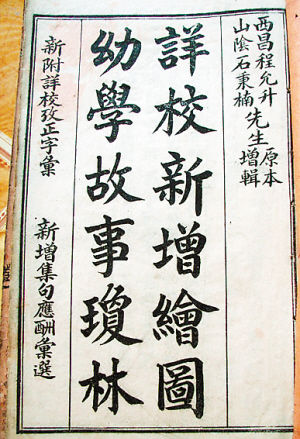 西昌程允升先生原本
山陰石秉楠先生增輯
詳校新增繪圖
幼學故事瓊林
新附詳校攷正字彙
新增集句應酬彙選